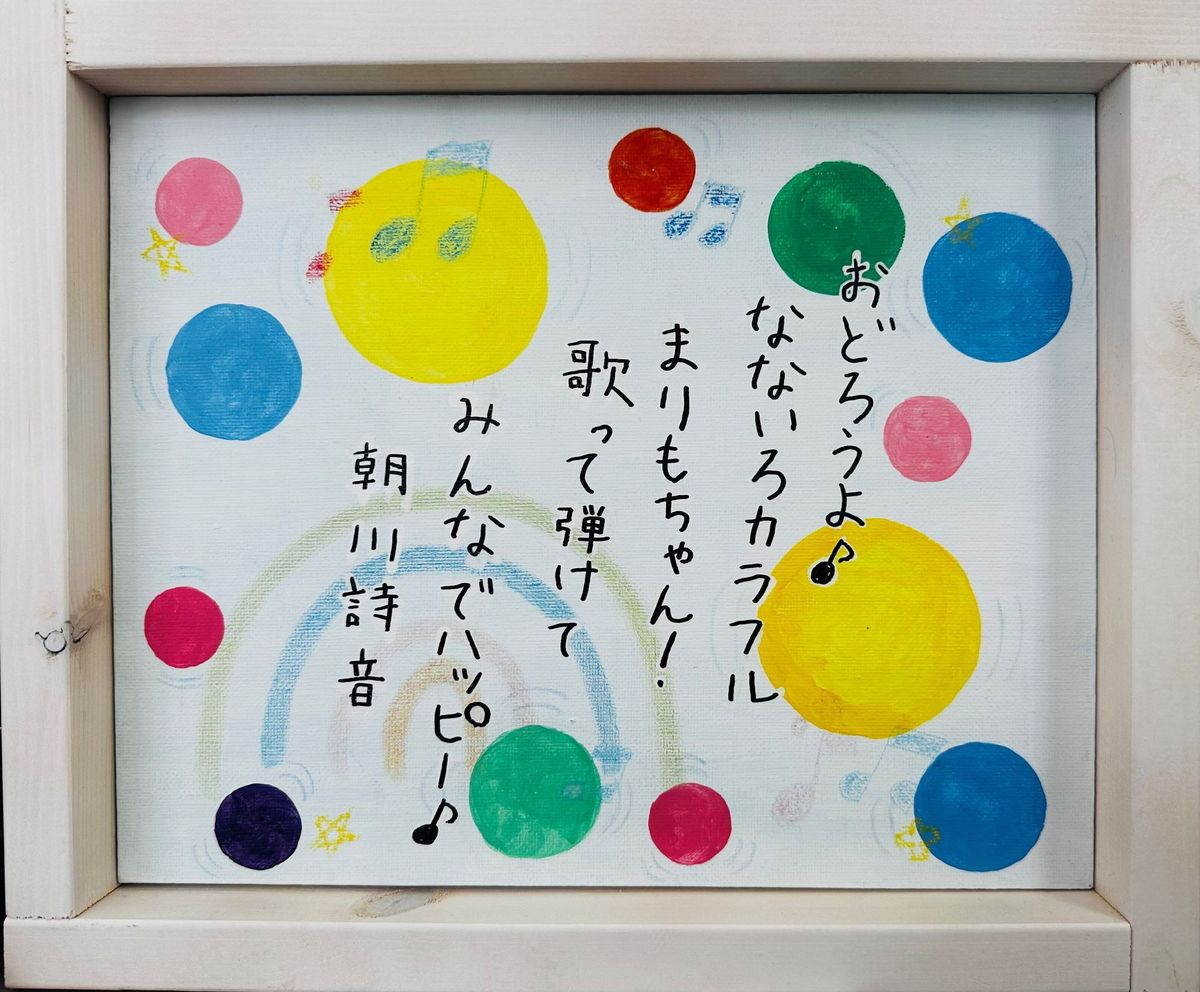 おどろうよ♪
なないろカラフル
まりもちゃん!
歌って弾けて
みんなでハッピー♪
朝川詩音